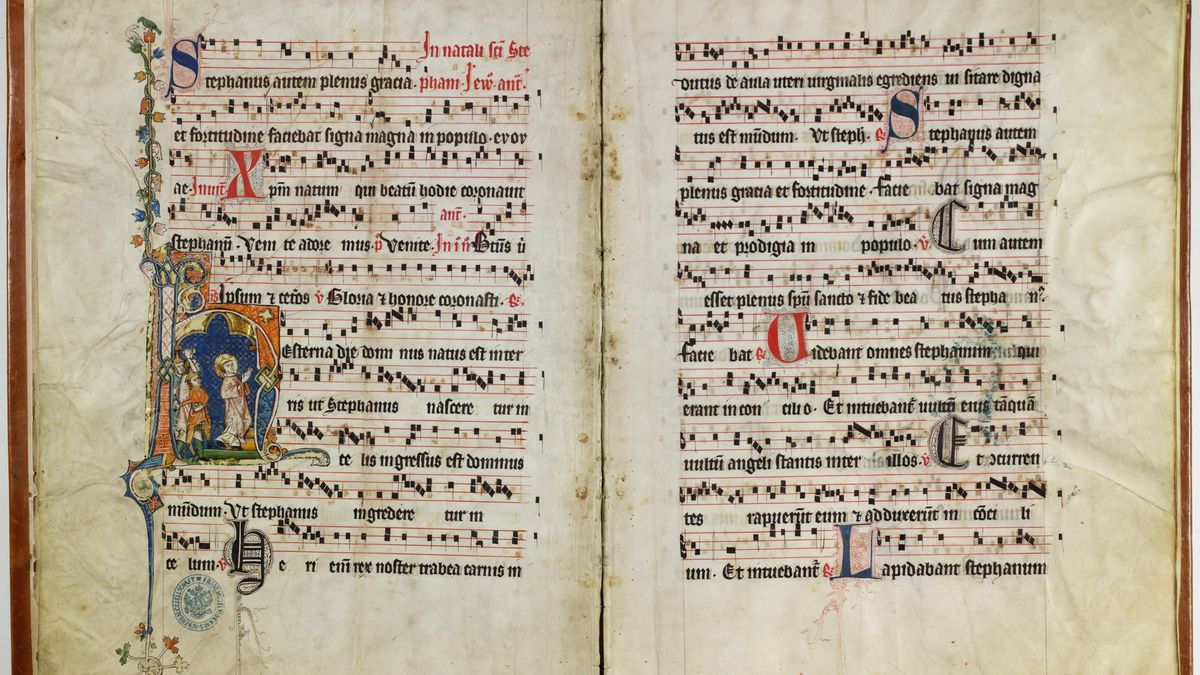 In natali sci Ste
Stephanus autem plenus gracia. pham. Jew. ant.
et fortitudine faciebat signa magna in populo. evov
ae. Xpm natum qui beatu hodie coronauit
ant.
stephanu. Veni te adore mus. p Venite. In
Ipsum & cetos v Gloria & honore coronasti. R.
Hesterna die domi nus natus est inter
ris ut Stephanus nascere tur in
ce lis ingressus est dominus
mudum. Vt stephanus ingredere tur in
ce lum. v He ri eni rex noster trabea carnis in
dutus de aula uteri uirginalis egrediens ui sitare digna
tus est mudum. Vt steph. R Stephanus autem
plenus gracia et fortitudine. facie bat signa mag
na et prodigia in populo. v Cum autem
esset plenus spu sancto & fide bea tus stepha
facie bat R Uidebant omnes stephanum qui
erant in con cilio. Et intuebant uultu eius taqua
uultu angeli stantis inter illos. v Et ocurren
tes rapuerut eum & adduxerut in coci li
um. Et intuebant R Lapidabant stephanum